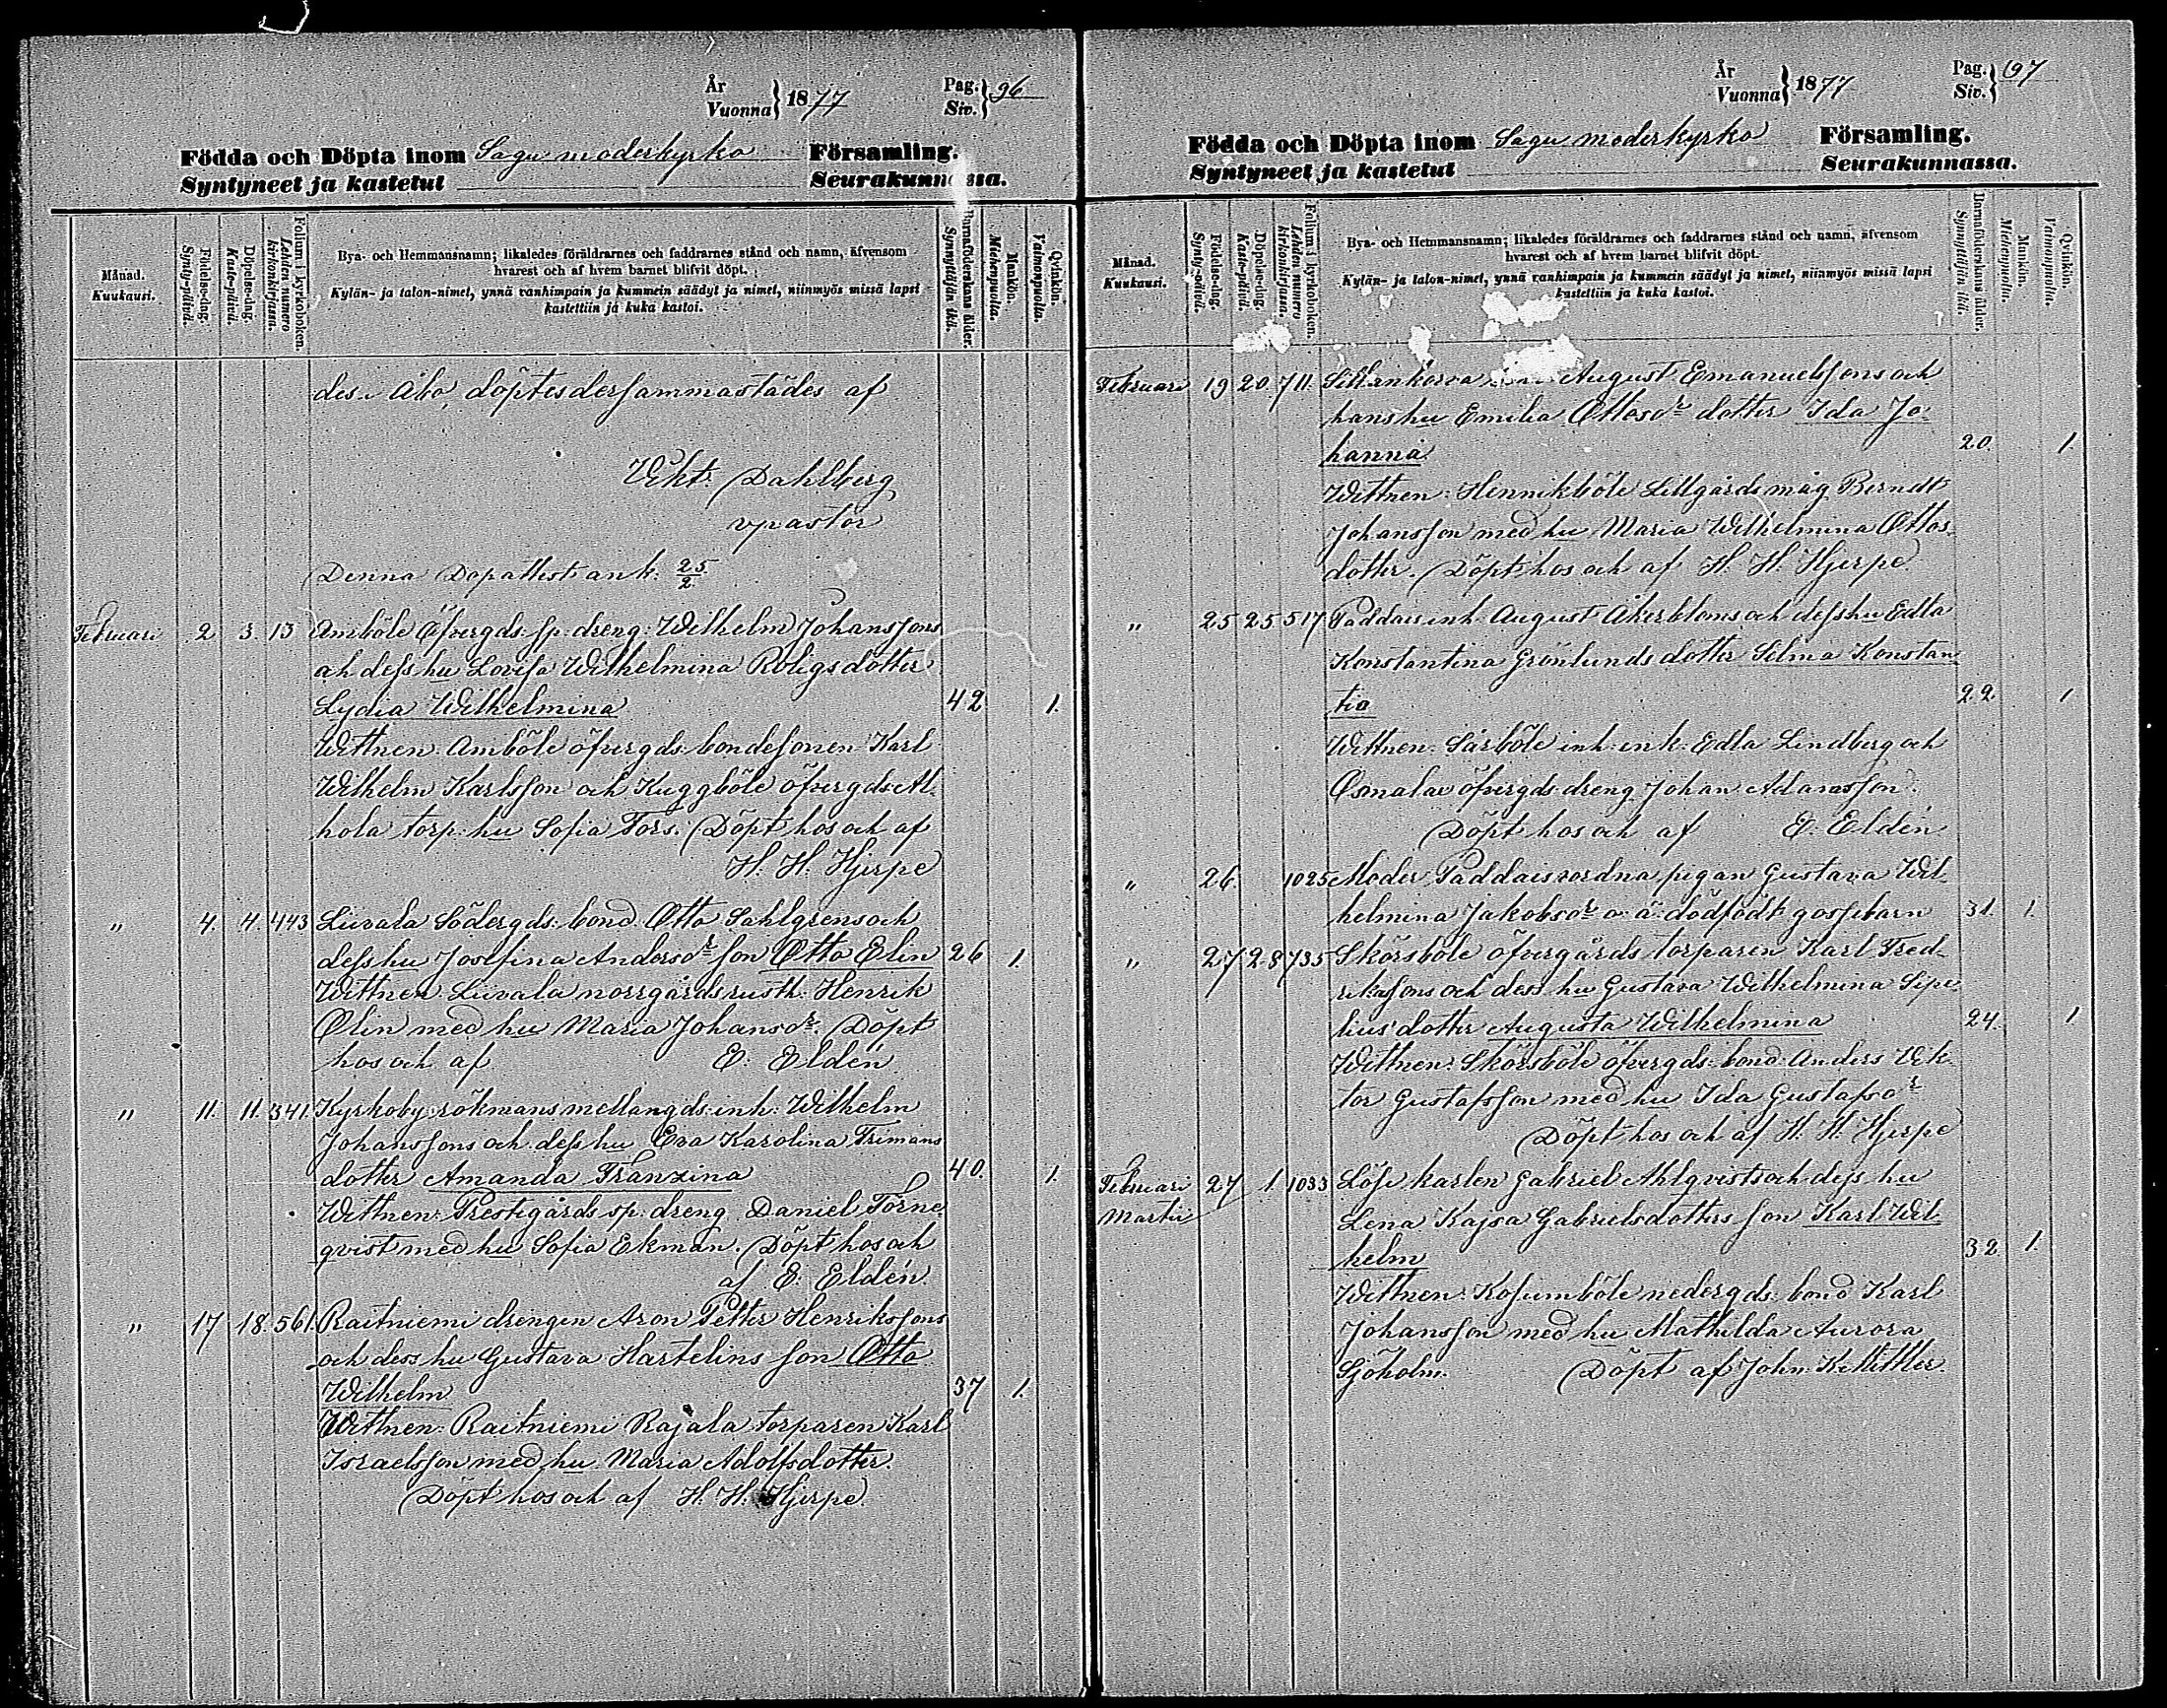 År
Vuonna } 1877
Pag.
Siv. } 96
Födda och Döpta inom Sagu moderkyrko Församling.
Syntyneet ja kastetut Seurakunnassa.
Månad.
Kuukausi.
Födelse-dag.
Synty-päivä.
Döpelse-dag.
Kaste-päivä.
Folium i kyrkoboken.
Lehden numero kirkonkirjassa.
Bya- och Hemmansnamn; likaledes föräldrarnes och faddrarnes stånd och namn, äfvensom
hvarest och af hvem barnet blifvit döpt.
Kylän- ja talon-nimet, ynnä vanhimpain ja kummein säädyt ja nimet, niinmyös missä lapsi
kastettiin ja kuka kastoi.
Barnaföderskans ålder.
Synnyttäjän ikä.
Mankön.
Miehenpuolia.
Qvinkön.
Vaimonpuolia.
des i Åbo, döptes dersammastädes af
Vikt. Dahlberg
vpastor
Denna Dopattest ank. 25/2
Februari 2 3. 13 Amböle Öfvergds. sp. dreng: Wilhelm Johanssons
och dess hu Lovisa Wilhelmina Roligs dotter
Lydia Wilhelmina 42 1.
Wittnen. Amböle öfvergds bondesonen Karl
Wilhelm Karlsson och Kuggböle öfvergds Al-
hola torp. hu Sofia Fors. Döpt hos och af
H. H. Hjerpe
" 4. 4. 443 Liivala Södergds. bond. Otto Sahlgrens och
dess hu Josefina Andersdr son Otto Elin 26 1.
Wittnen Liivala norrgårds rusth. Henrik
Olin med hu Maria Johansdr. Döpt
hos och af E. Eldén
" 11. 11. 341. Kyrkoby rökmans mellangds inh: Wilhelm
Johanssons och dess hu Eva Karolina Frimans
dotter Amanda Franzina 40. 1.
Wittnen: Prestegårds sp. dreng Daniel Törne-
qvist med hu Sofia Ekman. Döpt hos och
af E. Eldén.
" 17 18. 561. Raitniemi drengen Aron Petter Henrikssons
och dess hu Gustava Hartelins son Otto
Wilhelm 37 1.
Wittnen: Raitniemi Rajala torparen Karl
Israelsson med hu Maria Adolfsdotter.
Döpt hos och af H. H. Hjerpe.
År
Vuonna } 1877
Pag.
Siv. } 97
Födda och Döpta inom Sagu moderkyrko Församling.
Syntyneet ja kastetut Seurakunnassa.
Månad.
Kuukausi.
Födelse-dag.
Synty-päivä.
Döpelse-dag.
Kaste-päivä.
Folium i kyrkoboken.
Lehden numero kirkonkirjassa.
Bya- och Hemmansnamn; likaledes föräldrarnes och faddrarnes stånd och namn, äfvensom
hvarest och af hvem barnet blifvit döpt.
Kylän- ja talon-nimet, ynnä vanhimpain ja kummein säädyt ja nimet, niinmyös missä lapsi
kastettiin ja kuka kastoi.
Barnaföderskans ålder.
Synnyttäjän ikä.
Mankön.
Miehenpuolia.
Qvinkön.
Vaimonpuolia.
Februari 19 20. 711. Sillankorva August Emanuelssons och
hans hu Emilia Ottosdr dotter Ida Jo-
hanna 20. 1.
Wittnen: Hennikböle Lillgårds måg Berndt
Johansson med hu Maria Wilhelmina Ottos-
dotter. Döpt hos och af H. H. Hjerpe
" 25 25 517 Paddais inh. August Åkerbloms och dess hu Edla
Konstantina Grönlunds dotter Selma Konstan
tia 22 1
Wittnen: Särböle inh. enk. Edla Lindberg och
Osmalax öfvergds dreng Johan Adamsson.
Döpt hos och af E. Eldén
" 26. 1025 Moder Paddais vordna pigan Gustava Wil-
helmina Jakobsdr o. ä. dödfödt gossebarn 31. 1.
" 27 28 735 Skörsböle öfvergårds torparen Karl Fred-
rikssons och dess hu Gustava Wilhelmina Sipe-
lius dotter Augusta Wilhelmina 24. 1
Wittnen: Skörsböle öfvergds. bond. Anders Vik-
tor Gustafsson med hu Ida Gustafsdr
Döpt hos och af H. H. Hjerpe
Februari 27 1 1033 Löse karlen Gabriel Ahlqvists och dess hu
Martii Lena Kajsa Gabrielsdotters son Karl Wil-
helm 32. 1.
Wittnen: Kosumböle nedergds. bond Karl
Johansson med hu Mathilda Aurora
Sjöholm. Döpt af John